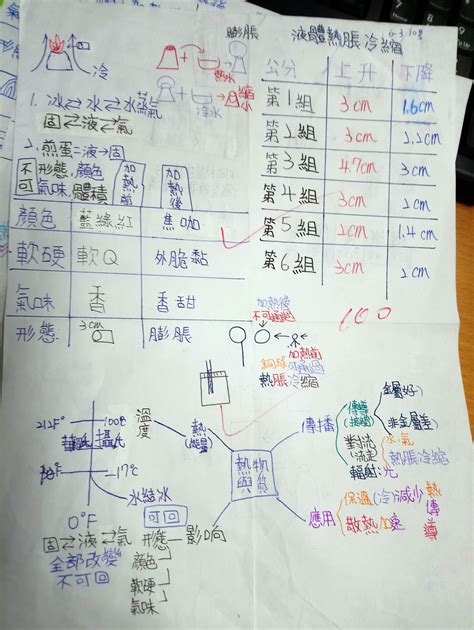 膨脹
液體熱脹冷縮
冷
熱水
冷水
縮小
1. 冰⇄水⇄水蒸氣
固⇄液⇄氣
2. 煎蛋=液→固
不可
形態,顏色
氣味,體積
加熱前
加熱後
顏色 藍綠紅 焦咖
軟硬 軟Q 外脆黏
氣味 香 香甜
形態 3cm 膨脹
公分 上升 下降
第1組 3cm 1.6cm
第2組 3cm 2.2cm
第3組 4.7cm 3cm
第4組 3cm 2cm
第5組 2cm 1.4cm
第6組 3cm 2cm
100
加熱後
不可通過
銅球
加熱前
可通過
熱脹冷縮
212F°
100℃
華氏
攝氏
-17℃
0°F
水結冰
可回
溫度
熱(能量)
熱與物質
傳播
傳導
金屬好
非金屬差
對流
水,氣
熱脹冷縮
輻射:光
應用
保溫(冷)減少
散熱 加速
熱傳導
影響
形態
顏色
軟硬
氣味
固⇄液⇄氣
全部改變
不可回